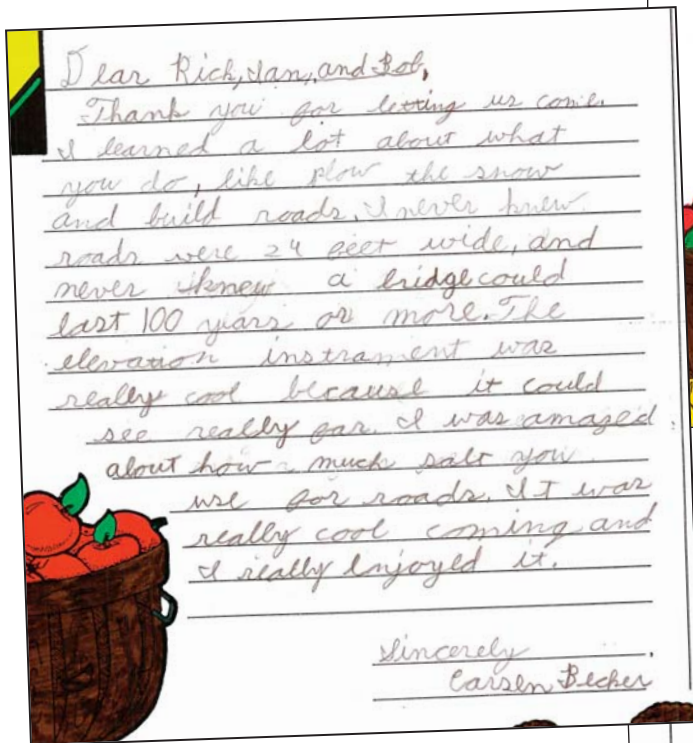 Dear Rich, Jan, and Bob,
Thank you for letting us come.
I learned a lot about what
you do, like plow the snow
and build roads. I never knew
roads were 24 feet wide, and
never knew a bridge could
last 100 years or more. The
elevation instrament was
really cool because it could
see really far. I was amazed
about how much salt you
use for roads. It was
really cool coming and
I really enjoyed it.
Sincerely,
Carsen Becker